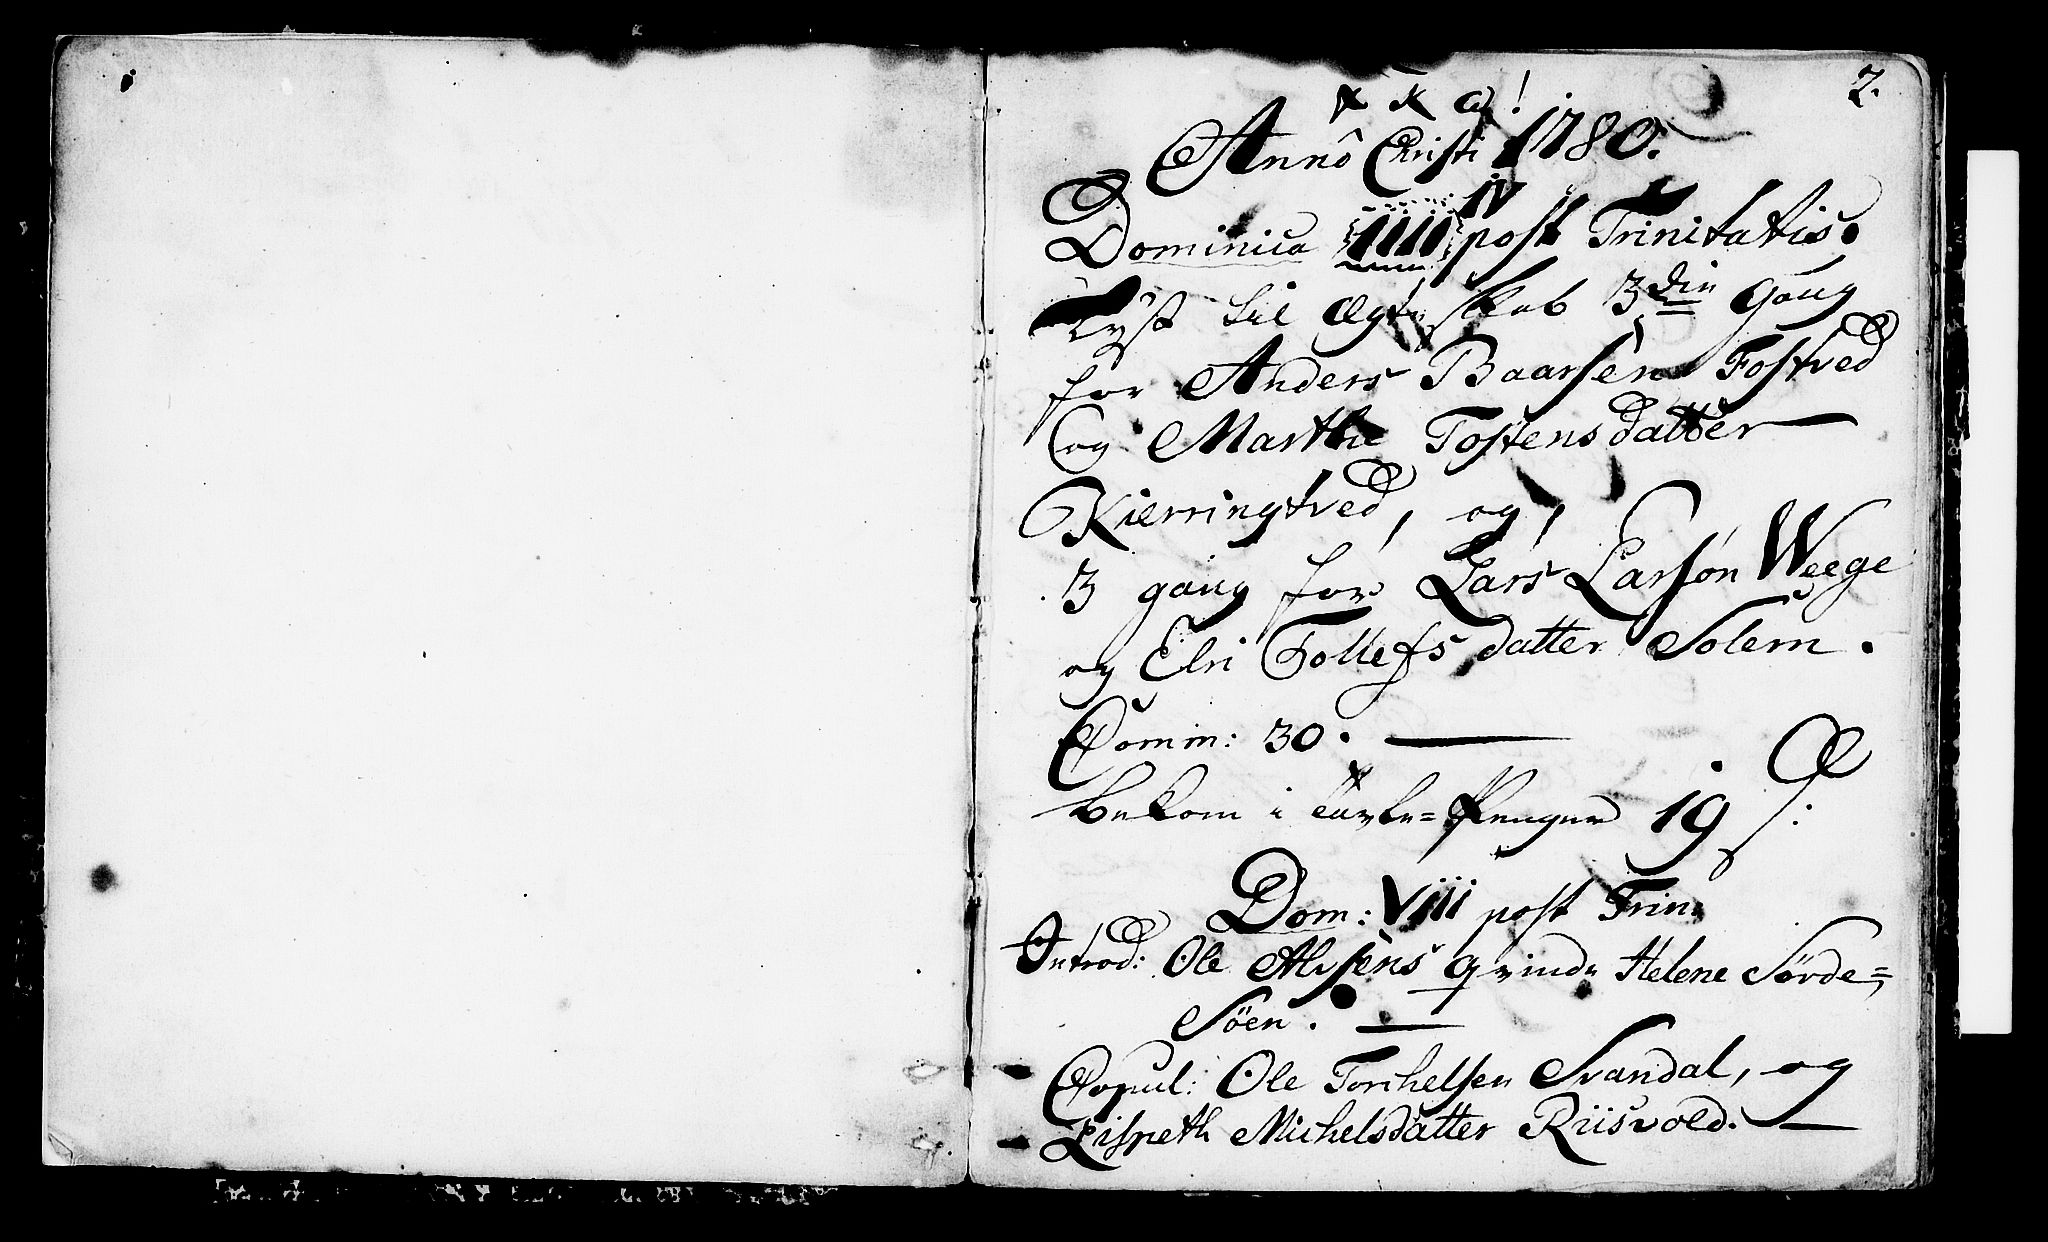 2.
Anno Christi 1780.
Dominica IV post Trinitatis.
Lyst til Ægteskab 3die gang
for Anders Baarsen Fostved
og Marthe Tostensdatter
Kierringtved, og,
3 gang for Lars Larsøn Weege
og Elri Tollefsdatter Solem.
Comm: 30.
bekom i Tavle=Penger 19 ß:
Dom: Viii post Trin:
Introd: Ole Alvsens qvinde Helene Sörde=
Söen.
Copul: Ole Torchelsen Svandal, og
Lispeth Michelsdatter Riisvold.